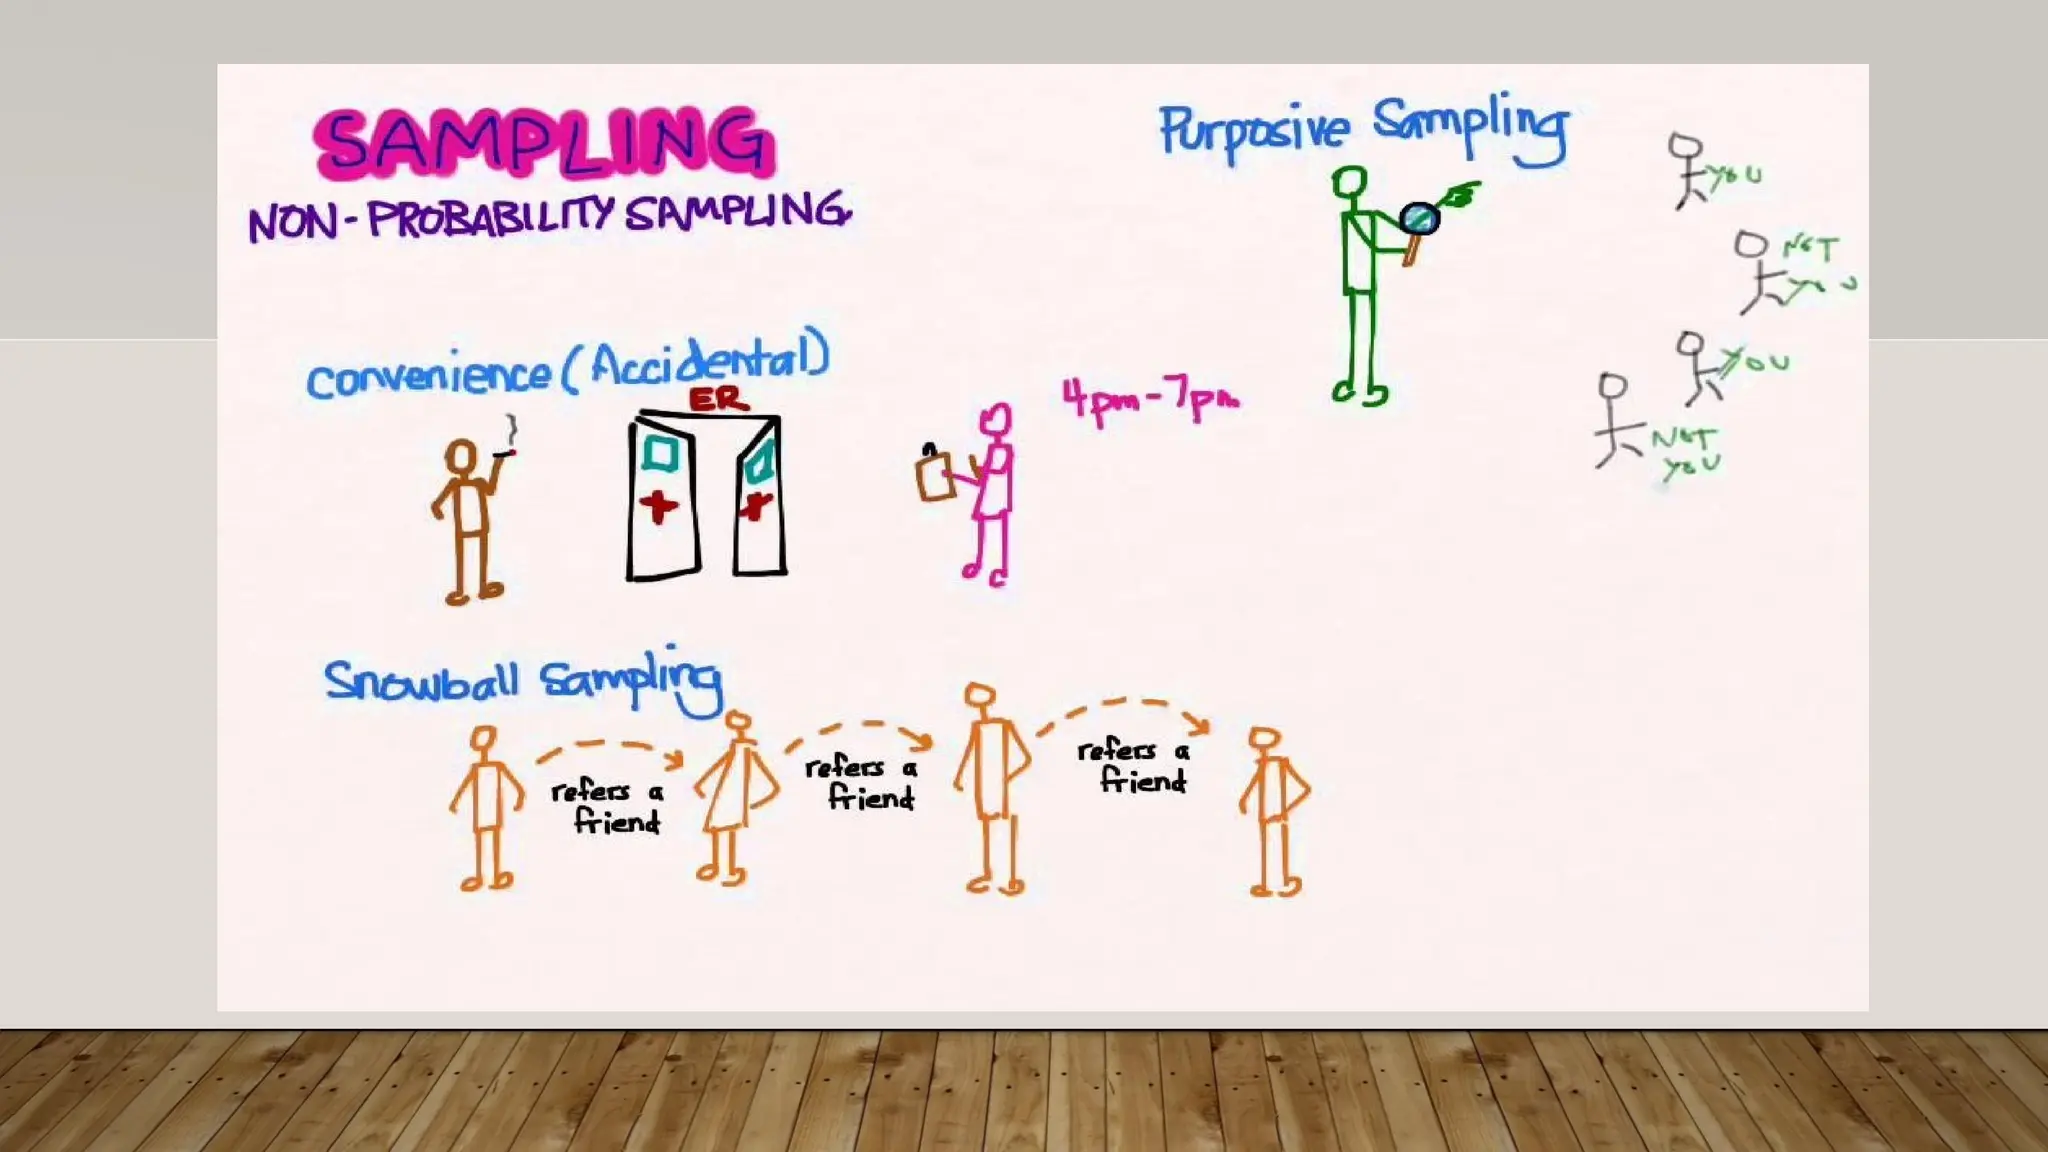 SAMPLING
NON-PROBABILITY SAMPLING
Purposive Sampling
YOU
NOT
YOU
YOU
NOT
YOU
Convenience (Accidental)
ER
4pm-7pm
Snowball Sampling
refers a
friend
refers a
friend
refers a
friend